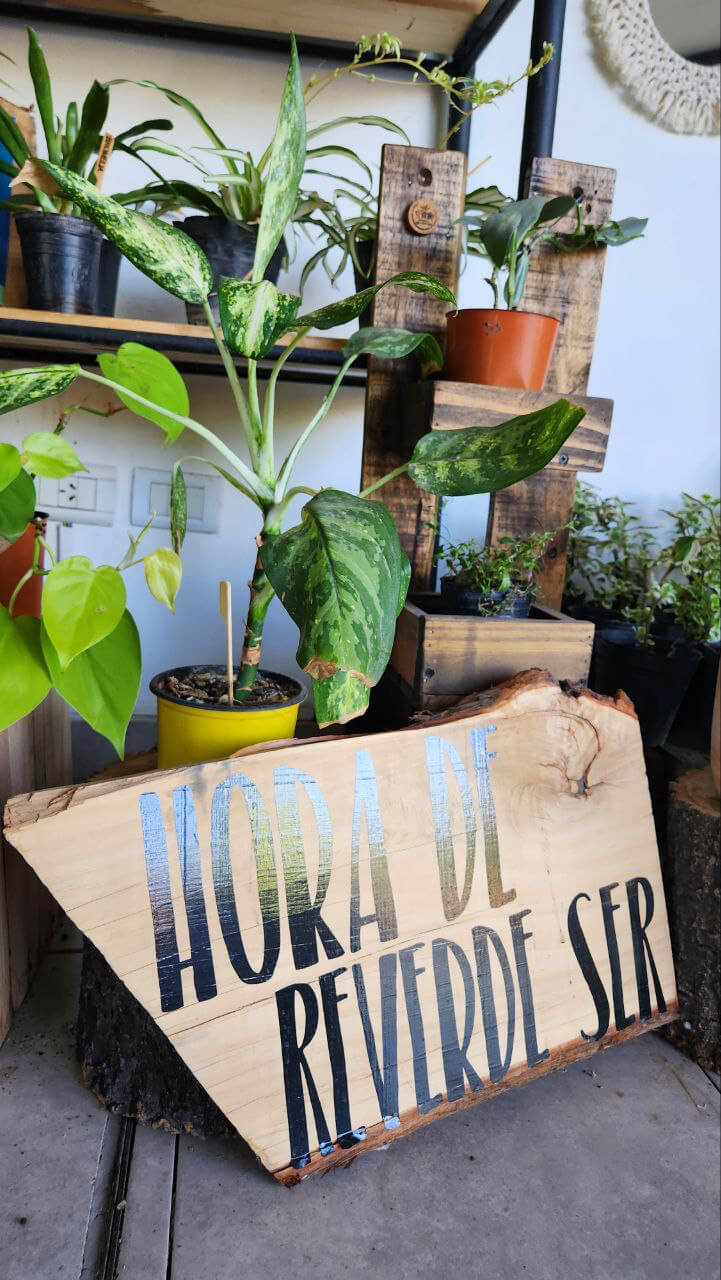 HORA DE
REVERDE SER